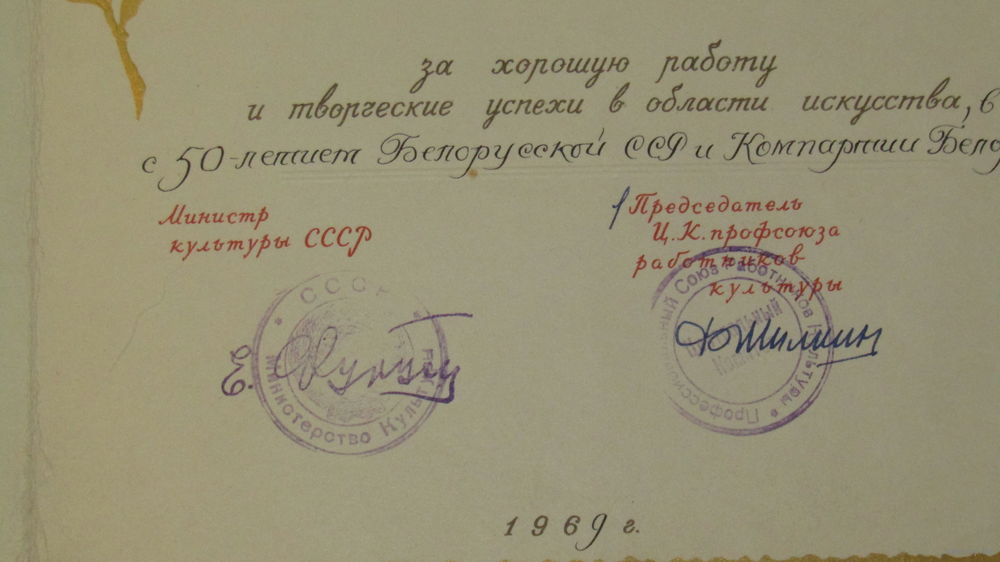 за хорошую работу
и творческие успехи в области искусства, в
с 50-летием Белорусской ССР и Компартии Бело
Министр
культуры СССР
Председатель
Ц.К. профсоюза
работников
культуры
СССР
Министерство Культуры
Профессиональный Союз Работников Культуры
Центральный
Комитет
1969 г.